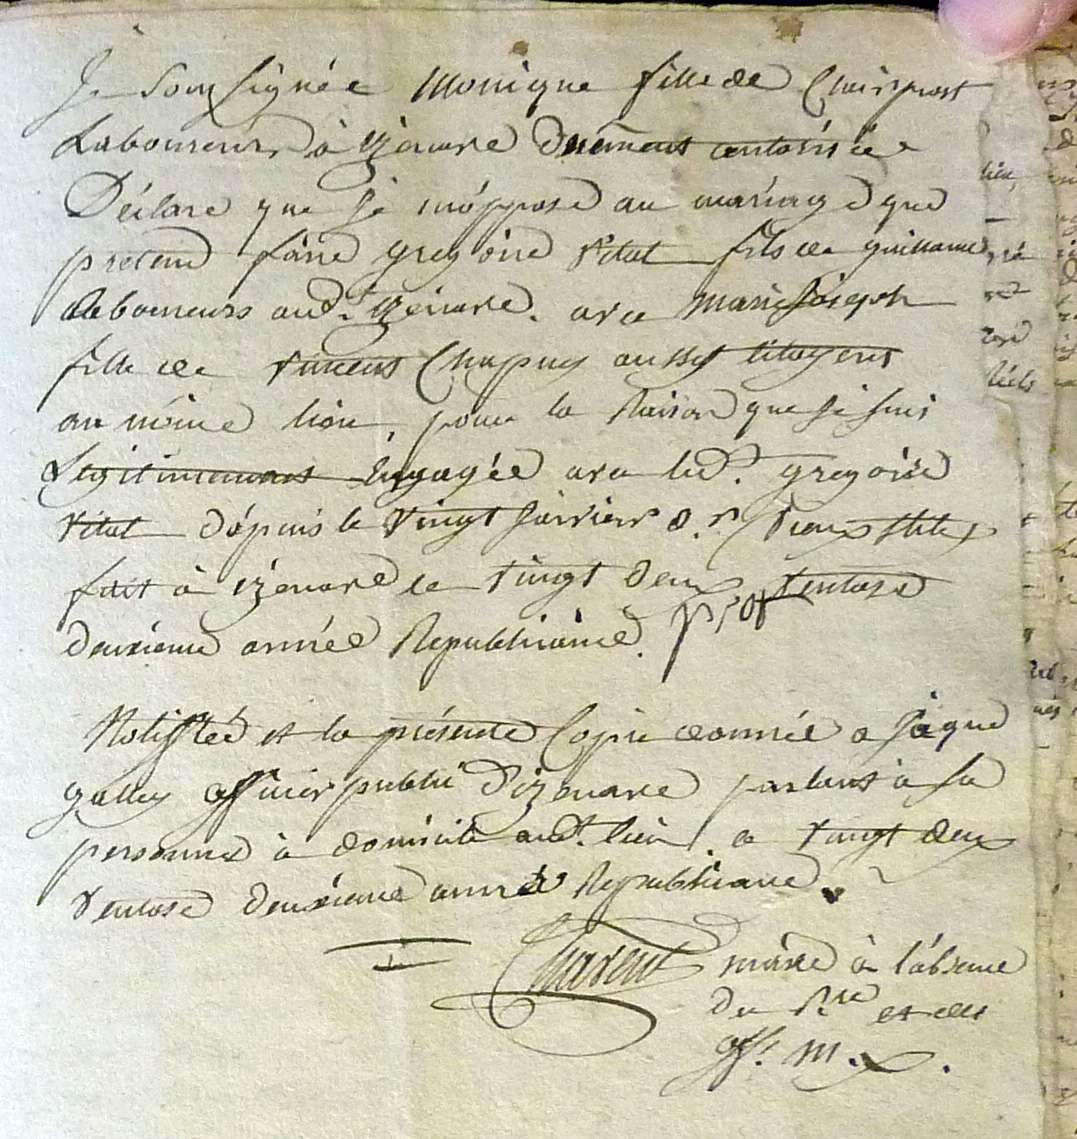 Je Soussignée Monique fille de Claispost
Laboureur, à Izenave Duement authorisée
Déclare que je m'óppose au mariage que
prétend faire gregoire Vitat fils de guillaume
laboureurs aud.t Izenave. avec Marie Joseph
fille de Vincent Chapuy aussy Citoyens
au même lieu, pour la Raison que je suis
Légitimement Engagée avec led.t gregoire
Vitat dépuis le Vingt janvier d.r vieux stile
fait à izenave le vingt deux Ventose
deuxieme année Republicaine.
Notiffiée et la présente Copie donnée a jaque
gallix officier public d'izenave parlant à sa
personne à domicile aud.t lieu. ce vingt deux
ventose deuxieme année Republicaine.
Charent maire à l'absence
Du S.re et des
off. M.x.